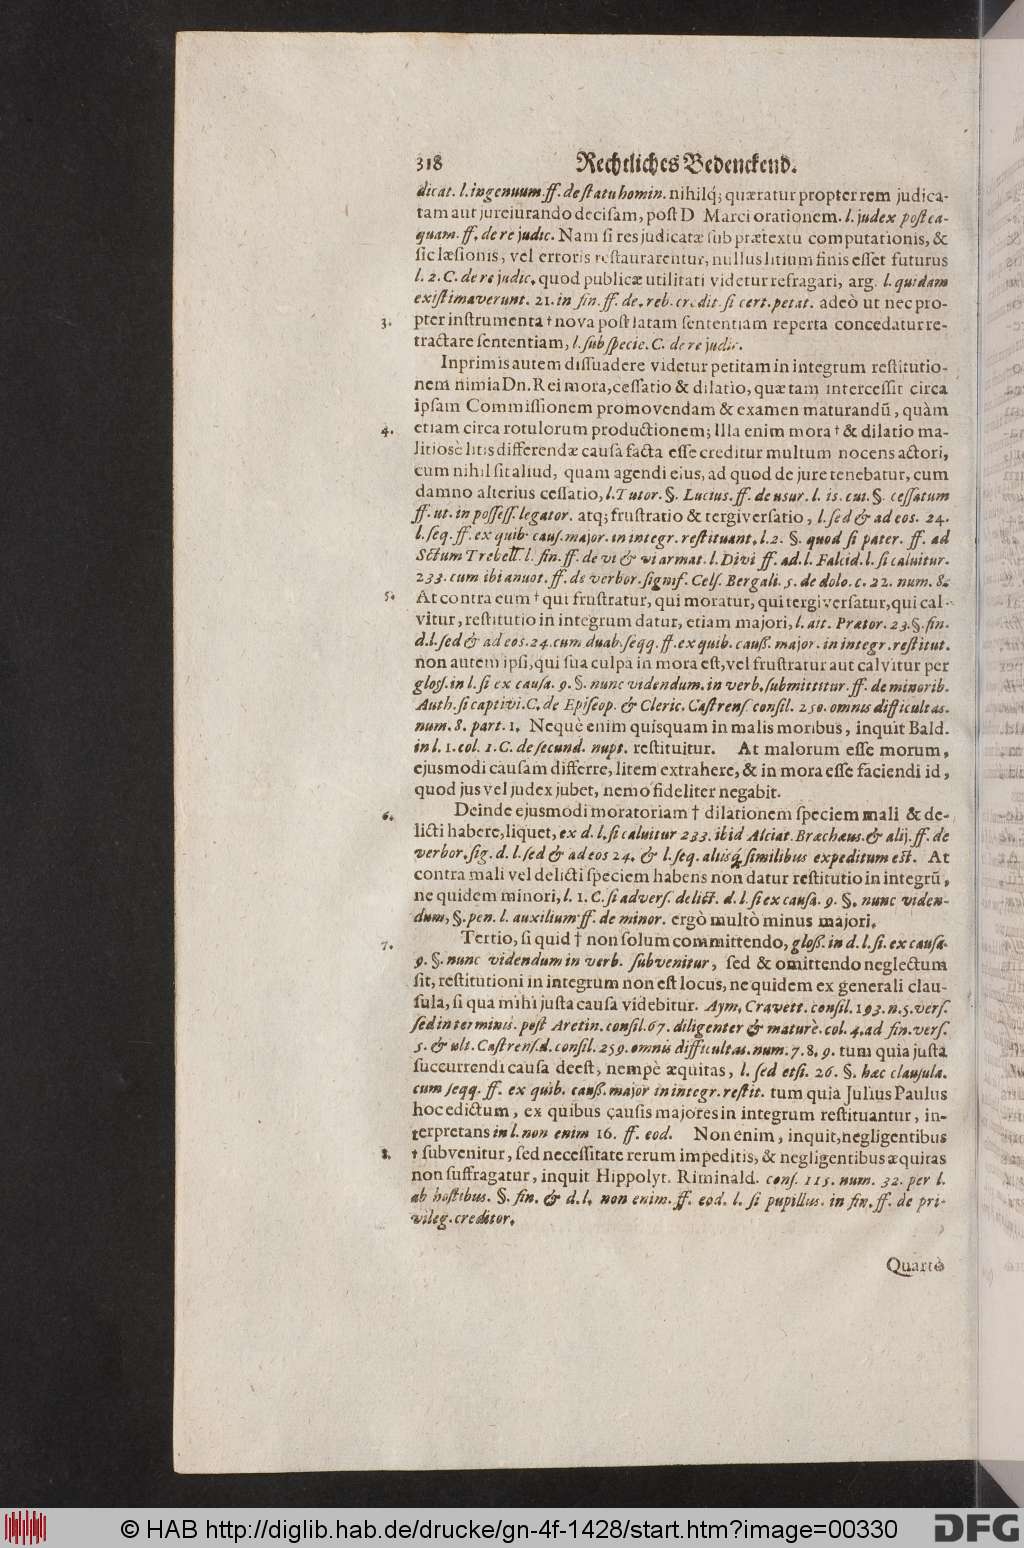 318 Rechtliches Bedenckend.
dicat. l. ingenuum. ff. de statu homin. nihilq́; quæratur propter rem judica-
tam aut jureiurando decisam, post D Marci orationem. l. judex post ea-
quam. ff. de re judic. Nam si res judicatæ sub prætextu computationis, &
sic læsionis, vel erroris restaurarentur, nullus litium finis esset futurus
l. 2. C. de re judic. quod publicæ utilitati videtur refragari, arg. l. quidam
existimaverunt. 21. in fin. ff. de. reb. credit. si cert. petat. adeò ut nec pro-
3. pter instrumenta † nova post latam sententiam reperta concedatur re-
tractare sententiam, l. sub specie. C. de re judic.
Inprimis autem dissuadere videtur petitam in integrum restitutio-
nem nimia Dn. Rei mora, cessatio & dilatio, quæ tam intercessit circa
ipsam Commissionem promovendam & examen maturandũ, quàm
4. etiam circa rotulorum productionem; Illa enim mora † & dilatio ma-
litiosè litis differendæ causa facta esse creditur multum nocens actori,
cum nihil sit aliud, quam agendi eius, ad quod de jure tenebatur, cum
damno alterius cessatio, l. Tutor. §. Lucius. ff. de usur. l. is. cui. §. cessatum
ff. ut. in possess. legator. atq; frustratio & tergiversatio, l. sed & ad eos. 24.
l. seq. ff. ex quib. caus. major. in integr. restituant. l. 2. §. quod si pater. ff. ad
Sctum Trebell. l. fin. ff. de vi & vi armat. l. Divi ff. ad. l. Falcid. l. si calvitur.
233. cum ibi anuot. ff. de verbor. signif. Cels. Bergali. s. de dolo. c. 22. num. 8.
5. At contra eum † qui frustratur, qui moratur, qui tergiversatur, qui cal-
vitur, restitutio in integrum datur, etiam majori, l. ait. Prætor. 23. §. fin.
d. l. sed & ad eos. 24. cum duab. seqq. ff. ex quib. cauß. major. in integr. restitut.
non autem ipsi, qui sua culpa in mora est, vel frustratur aut calvitur per
gloss. in l. si ex causa. 9. §. nunc videndum. in verb. submittitur. ff. de minorib.
Auth. si captivi. C. de Episcop. & Cleric. Castrens. consil. 250. omnis difficultas.
num. 8. part. 1. Nequè enim quisquam in malis moribus, inquit Bald.
in l. 1. col. 1. C. de secund. nupt. restituitur. At malorum esse morum,
ejusmodi causam differre, litem extrahere, & in mora esse faciendi id,
quod jus vel judex jubet, nemo fideliter negabit.
6. Deinde ejusmodi moratoriam † dilationem speciem mali & de-
licti habere, liquet, ex d. l. si caluitur 233. ibid Alciat. Bræchæus. & alij. ff. de
verbor. sig. d. l. sed & ad eos 24. & l. seq. aliisq́ similibus expeditum est. At
contra mali vel delicti speciem habens non datur restitutio in integrũ,
ne quidem minori, l. 1. C. si advers. delict. d. l. si ex causa. 9. §. nunc viden-
dum, §. pen. l. auxilium. ff. de minor. ergò multò minus majori.
7. Tertio, si quid † non solum committendo, gloß. in d. l. si. ex causa.
9. §. nunc videndum in verb. subvenitur, sed & omittendo neglectum
sit, restitutioni in integrum non est locus, ne quidem ex generali clau-
sula, si qua mihi justa causa videbitur. Aym. Cravett. consil. 193. n. 5. vers.
sed in terminis. post Aretin. consil. 67. diligenter & maturè. col. 4. ad fin. vers.
5. & ult. Castrens. d. consil. 259. omnis difficultas. num. 7. 8. 9. tum quia justa
succurrendi causa deest, nempè æquitas, l. sed etsi. 26. §. hæc clausula.
cum seqq. ff. ex quib. cauß. major in integr. restit. tum quia Julius Paulus
hoc edictum, ex quibus causis majores in integrum restituantur, in-
terpretans in l. non enim 16. ff. eod. Non enim, inquit, negligentibus
8. † subvenitur, sed necessitate rerum impeditis, & negligentibus æquitas
non suffragatur, inquit Hippolyt. Riminald. cons. 115. num. 32. per l.
ab hostibus. §. fin. & d. l. non enim. ff. eod. l. si pupillus. in fin. ff. de pri-
vileg. creditor.
Quartò
© HAB http://diglib.hab.de/drucke/gn-4f-1428/start.htm?image=00330
DFG